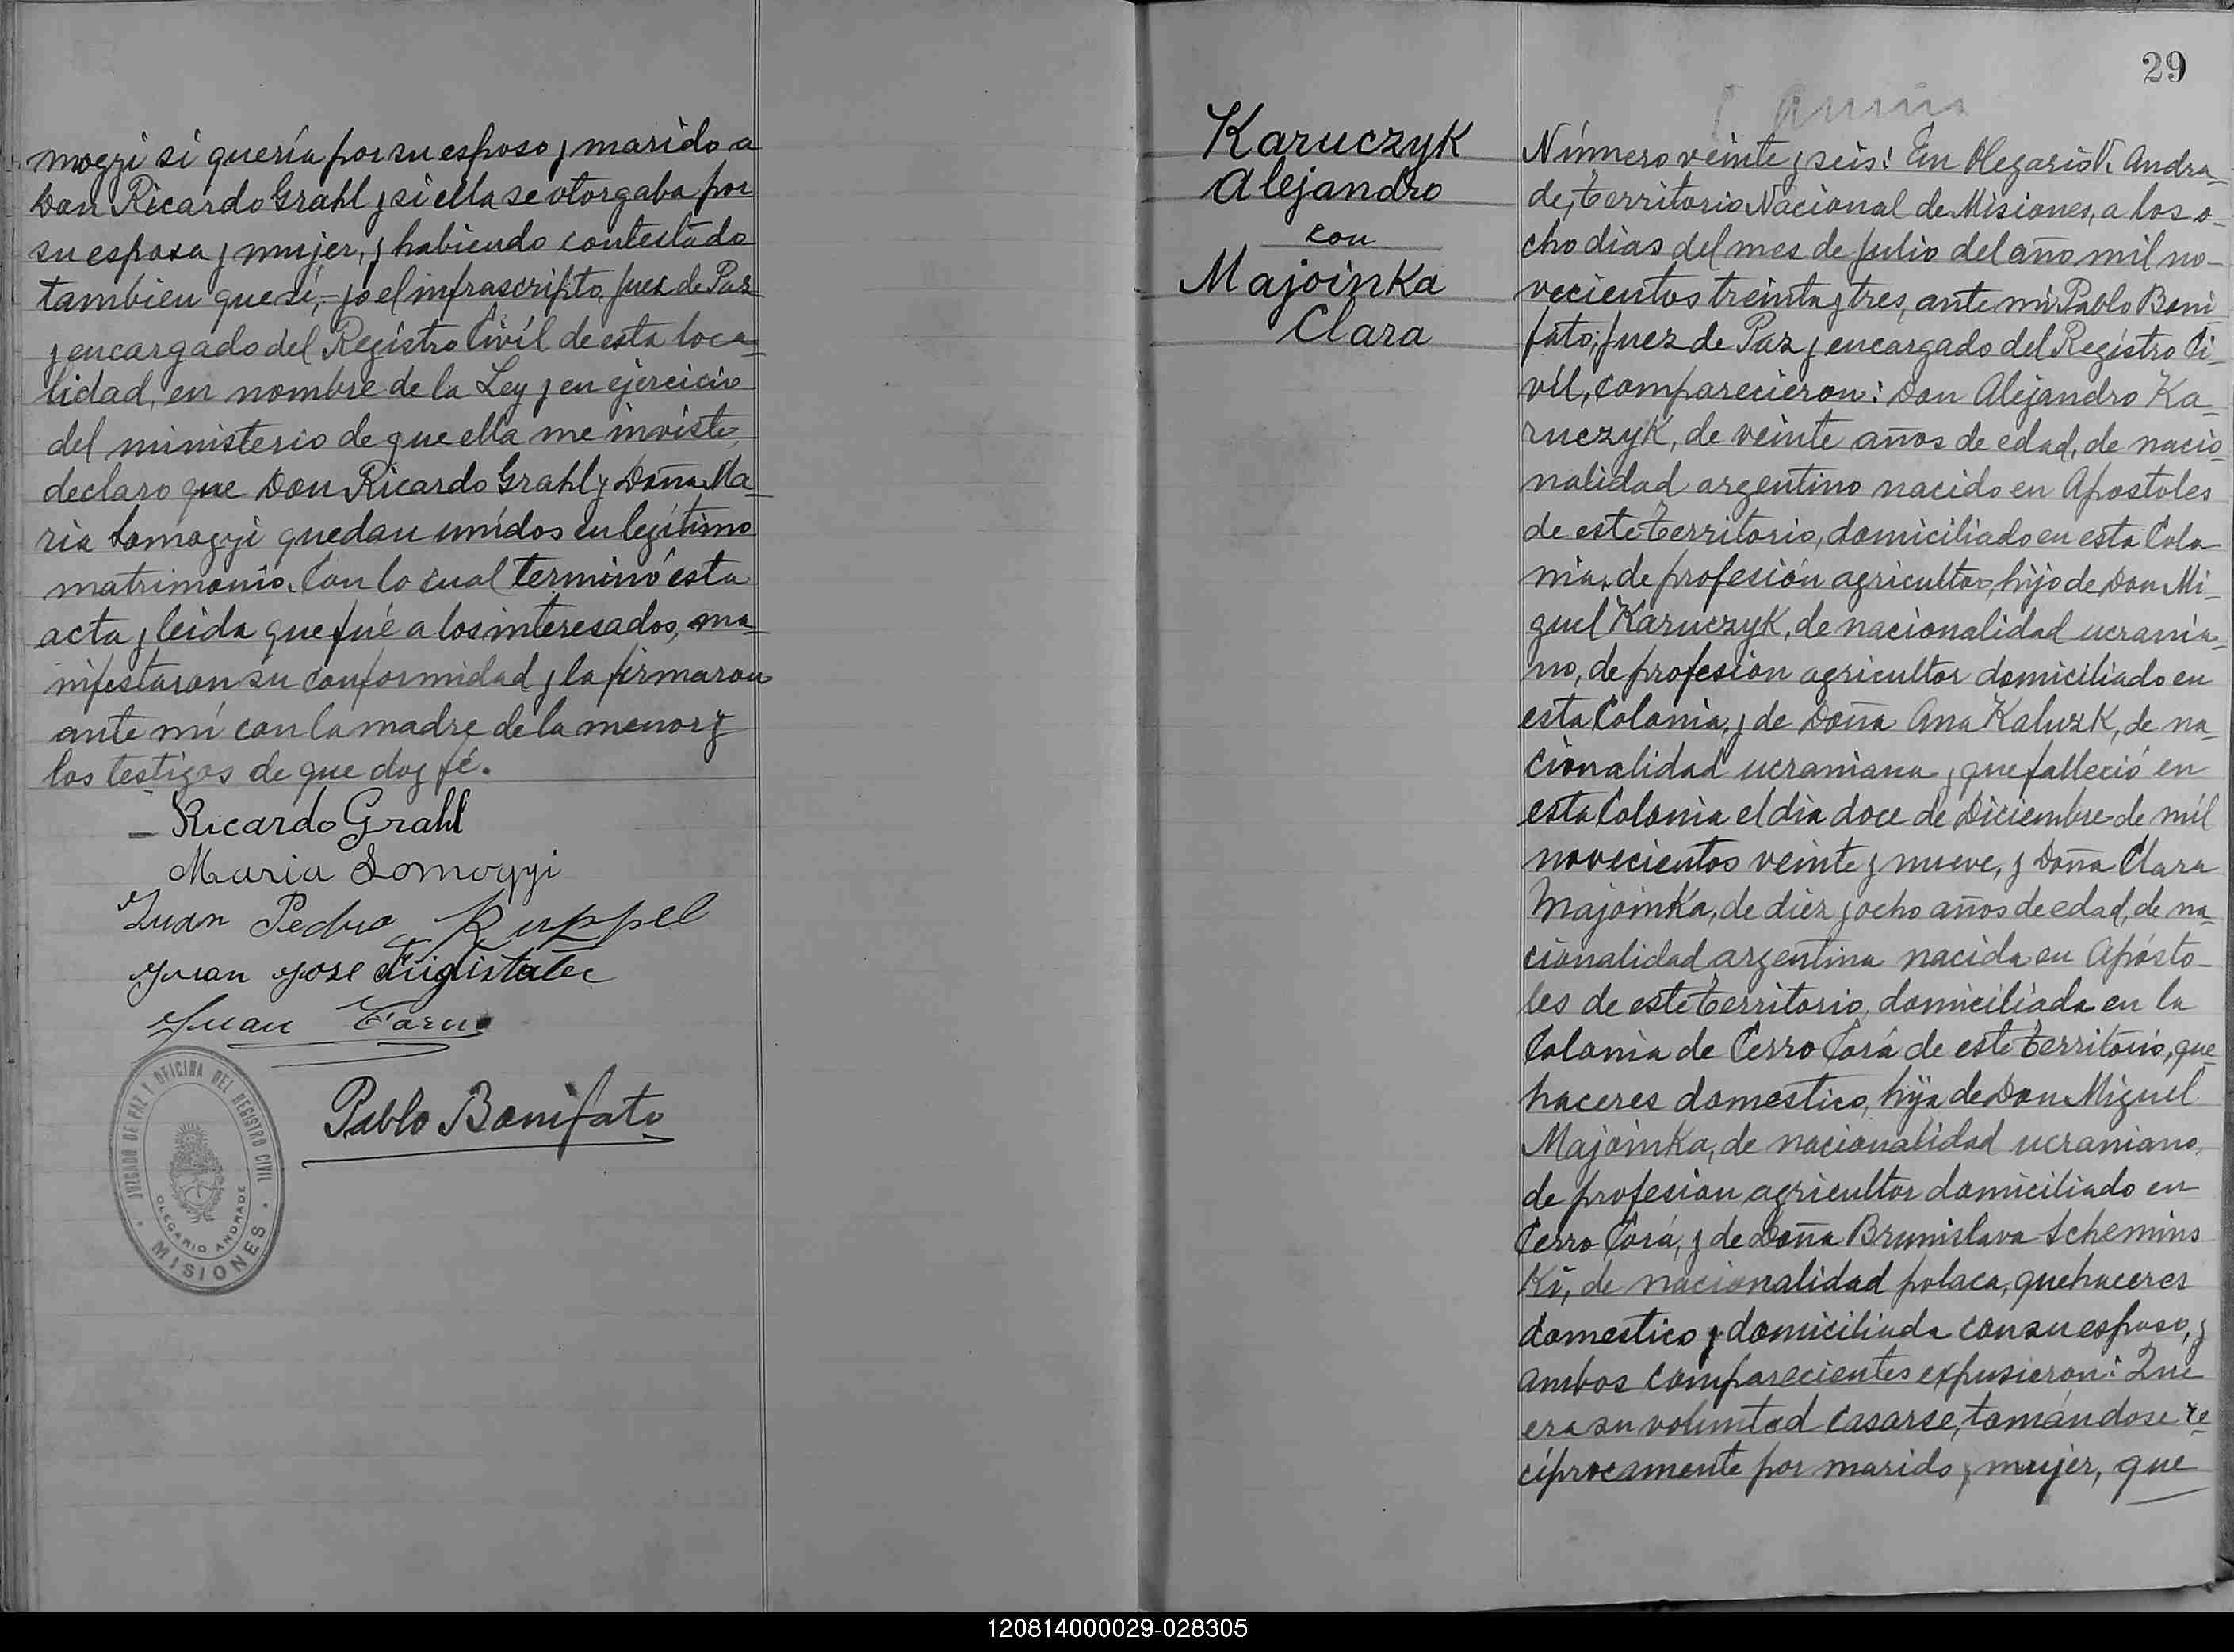 mogyi si quería por su esposo y marido a
Don Ricardo Grahl y si ella se otorgaba por
su esposa y mujer, y habiendo contestado
tambien que sí,= yo el infrascripto, Juez de Paz
y encargado del Registro Civíl de esta loca_
lidad, en nombre de la Ley y en ejercicio
del ministerio de que ella me inviste,
declaro que Don Ricardo Grahl y Doña Ma_
ria Somogyi quedan unídos en legítimo
matrimonio. Con lo cual terminó esta
acta y leida que fué a los interesados, ma_
nifestaron su conformidad y la firmaron
ante mí con la madre de la menor y
los testigos de que doy fé.
Ricardo Grahl
Maria Somogyi
Juan Pedro Ruppel
Juan Jose
Juan
Pablo Bonifato
JUZGADO DE PAZ Y OFICINA DEL REGISTRO CIVIL
OLEGARIO ANDRADE
MISIONES
29
Karuczyk
Alejandro
con
Majoinka
Clara
Número veinte y seis: En Olegario V. Andra_
de, territorio Nacional de Misiones, a los o_
cho dias del mes de Julio del año mil no_
vecientos treinta y tres, ante mi Pablo Boni_
fato, Juez de Paz y encargado del Registro Ci_
víl, comparecieron: Don Alejandro Ka_
ruczyk, de veinte años de edad, de nacio_
nalidad argentino nacido en Apostoles
de este territorio, domiciliado en esta Colo
nia, de profesión agricultor, hijo de Don Mi_
guel Karuczyk, de nacionalidad ucrania_
no, de profesion agricultor domiciliado en
esta Colonia, y de Doña Ana Kaluzk, de na_
cionalidad ucraniana y que falleció en
esta Colonia el dia doce de Diciembre de míl
novecientos veinte y nueve, y Doña Clara
Majoinka, de diez y ocho años de edad, de na_
cionalidad argentina nacida en Apósto_
les de este territorio, domiciliada en la
Colonia de Cerro Corá de este territorio, que_
haceres domestico, hija de Don Miguel
Majoinka, de nacionalidad ucraniano,
de profesion agricultor domiciliado en
Cerro Corá, y de Doña Brunislava Schemins
ki, de nacionalidad polaca, quehaceres
domestico y domiciliada con su esposo, y
ambos comparecientes expusieron: Que
era su voluntad casarse, tomándose re_
cíprocamente por marido y mujer, que
120814000029-028305